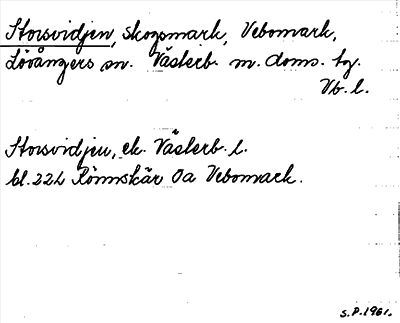 Storsvidjen, skogsmark, Vebomark,
Lövångers sn. Västerb. m. doms. tg.
Vb. l.
Storsvidjen, ek. Västerb. l.
bl. 22L Rönnskär 0a Vebomark.
S.P. 1961.